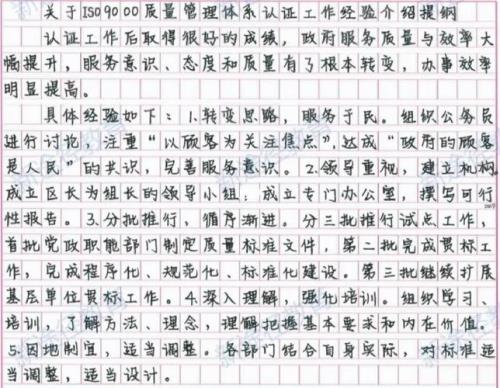 关于ISO9000质量管理体系认证工作经验介绍提纲
认证工作后取得很好的成绩，政府服务质量与效率大
幅提升，服务意识、态度和质量有了根本转变，办事效率
明显提高。
具体经验如下：1.转变思路，服务于民。组织公务员
进行讨论，注重“以顾客为关注焦点”，达成“政府的顾客
是人民”的共识，完善服务意识。2.领导重视，建立机构。
成立区长为组长的领导小组；成立专门办公室，撰写可行
性报告。3.分批推行，循序渐进。分三批推行试点工作，
首批党政职能部门制定质量标准文件，第二批完成贯标工
作，完成程序化、规范化、标准化建设。第三批继续扩展
基层单位贯标工作。4.深入理解，强化培训。组织学习、
培训，了解方法、理念，理解把握基本要求和内在价值。
5.因地制宜，适当调整。各部门结合自身实际，对标准适
当调整，适当设计。